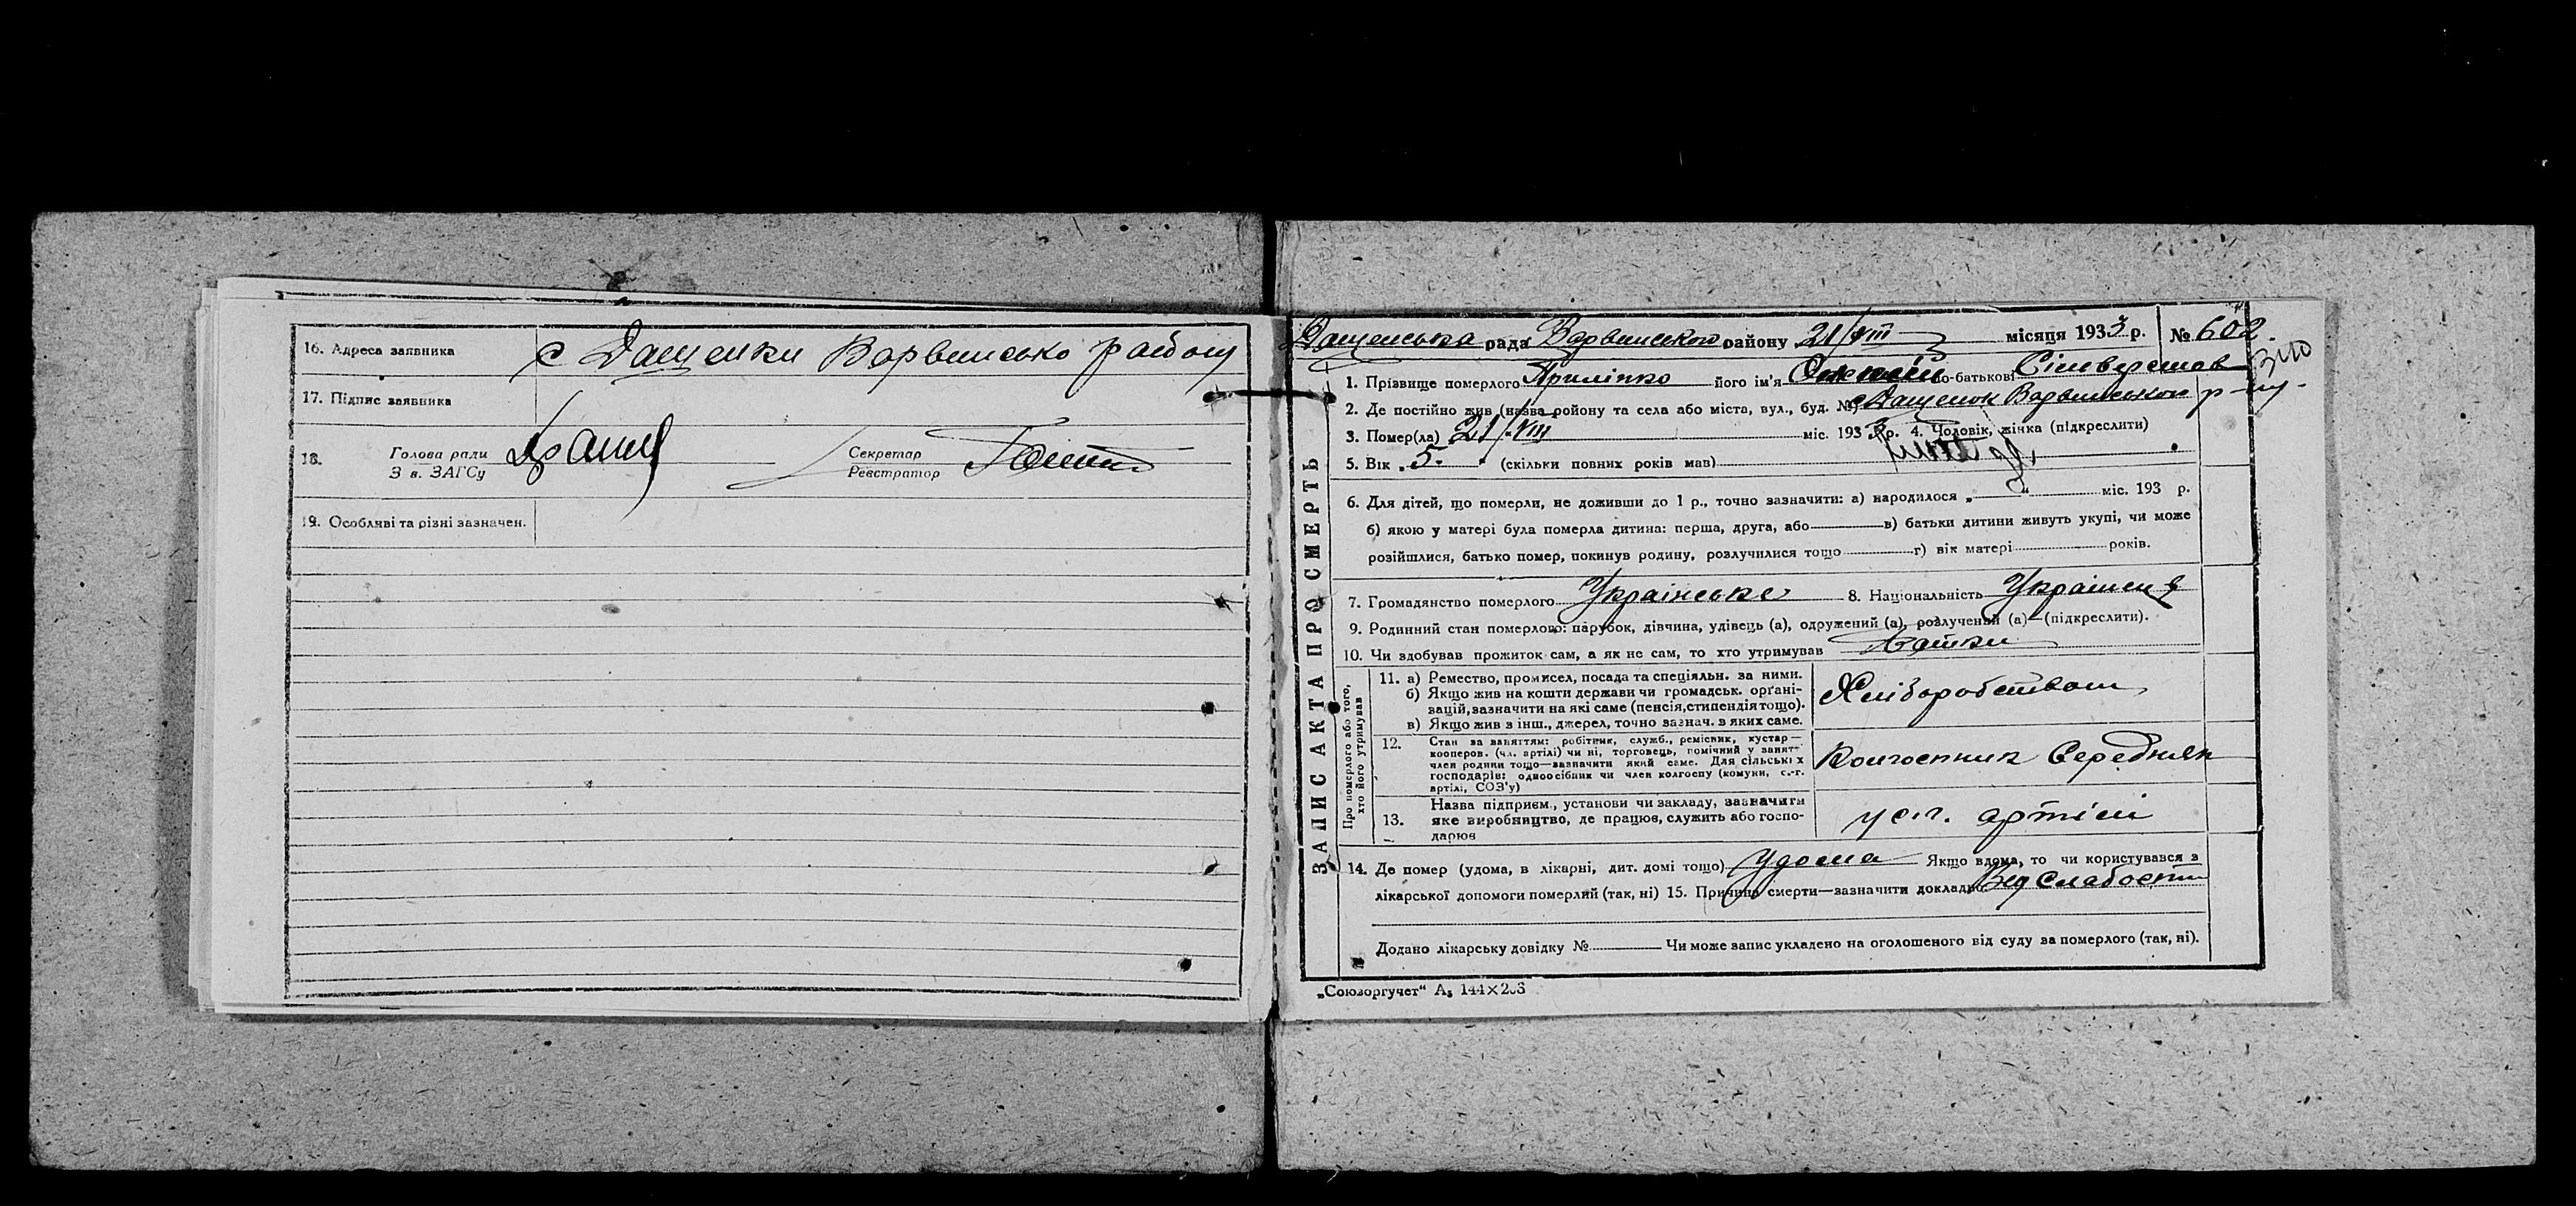 16. Адреса заявника с Дащенки Варвинсько району
17. Підпис заявника
18. Голова ради
З в. ЗАГСу
Секретар
Реєстратор
19. Особливі та різні зазначен.
ЗАПИС АКТА ПРО СМЕРТЬ
Дащенська рада Варвинського району 21/VIII місяця 1933 р. № 602.
1. Прізвище померлого Приліпко його ім'я по-батькові Сільверстов
2. Де постійно жив (назва району та села або міста, вул., буд. №) Дащенок Варвинського р-ну.
3. Помер(ла) 21/VIII міс. 1933 р. 4. Чоловік, жінка (підкреслити)
5. Вік 5. (скільки повних років мав)
6. Для дітей, що померли, не доживши до 1 р., точно зазначити: а) народилося „ “ міс. 193 р.
б) якою у матері була померла дитина: перша, друга, або в) батьки дитини живуть укупі, чи може
розійшлися, батько помер, покинув родину, розлучилися тощо г) вік матері років.
7. Громадянство померлого Українське 8. Національність Українец
9. Родинний стан померлого: парубок, дівчина, удівець (а), одружений (а), розлучений (а)—(підкреслити).
10. Чи здобував прожиток сам, а як не сам, то хто утримував Батки
Про померлого або того, хто його утримував
11. а) Ремество, промисел, посада та спеціяльн. за ними.
б) Якщо жив на кошти держави чи громадськ. орґані-
зацій, зазначити на які саме (пенсія, стипендія тощо).
в) Якщо жив з інш., джерел, точно зазнач. з яких саме.
Хліборобством
12. Стан за заняттям: робітник, служб., ремісник, кустар—
кооперов. (чл. артілі) чи ні, торговець, помічний у занятт
член родини тощо—зазначити який саме. Для сільськіх
господарів: одноосібник чи член колгоспу (комуни, с.-г.
артілі, СОЗ'у)
Колгоспник Середняк
13. Назва підприєм., установи чи закладу, зазначити
яке виробництво, де працює, служить або госпо-
дарює
артілі
14. Де помер (удома, в лікарні, дит. домі тощо) Удома Якщо вдома, то чи користувався з
лікарської допомоги померлий (так, ні) 15. Причина смерти—зазначити докладно Вед Слабости
Додано лікарську довідку № Чи може запис укладено на оголошеного від суду за померлого (так, ні).
„Союзоргучет“ А₅ 144×206